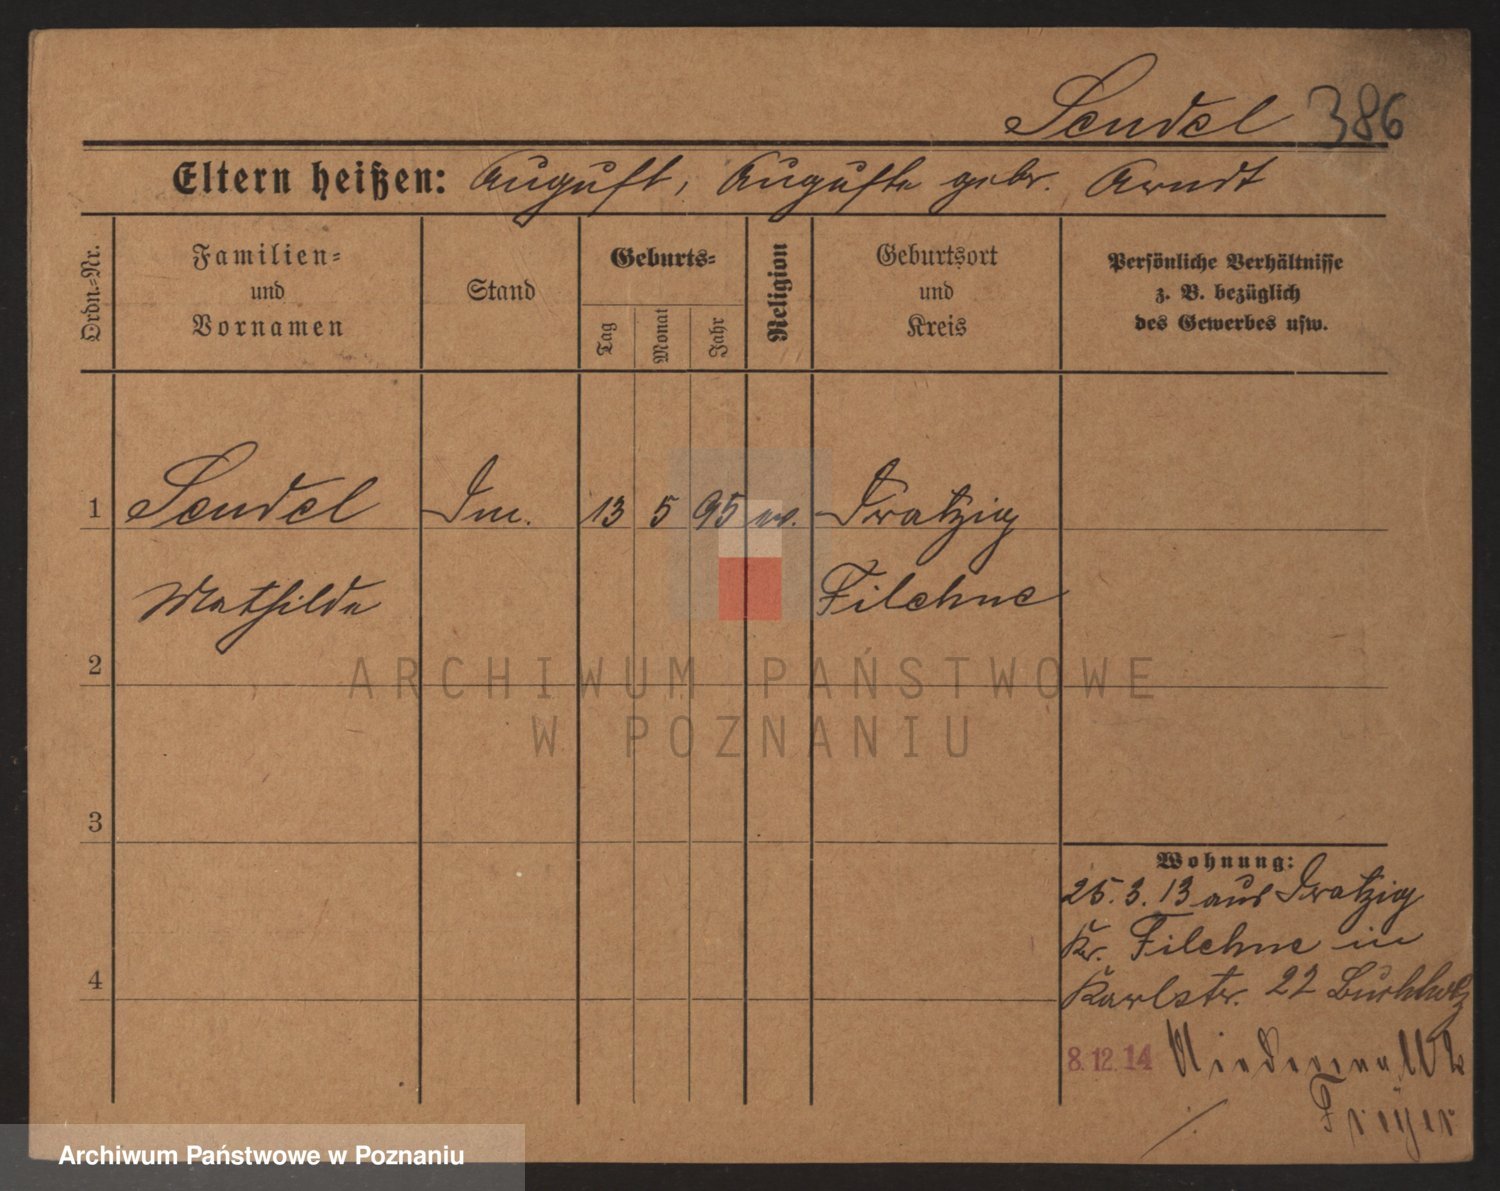 Sendel 386
Eltern heißen: August, Auguste gebr. Arndt
Ordn.=Nr.
Familien=
und
Vornamen
Stand
Geburts=
Tag
Monat
Jahr
Religion
Geburtsort
und
Kreis
Persönliche Verhältnisse
z. B. bezüglich
des Gewerbes usw.
1 Sendel 13 5 95 ev. Dratzig
Mathilde Filehne
2
ARCHIWUM PAŃSTWOWE
W POZNANIU
3
Wohnung:
25. 3. 13 aus Dratzig
Kr. Filehne in
4
Karlstr. 22 Buchholz
8.12.14
Archiwum Państwowe w Poznaniu